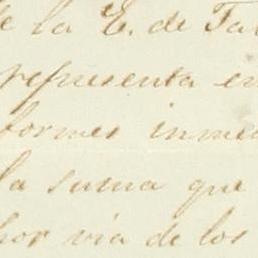 de la E. de Fa
representa en
formes inme
la suma que
por via de los